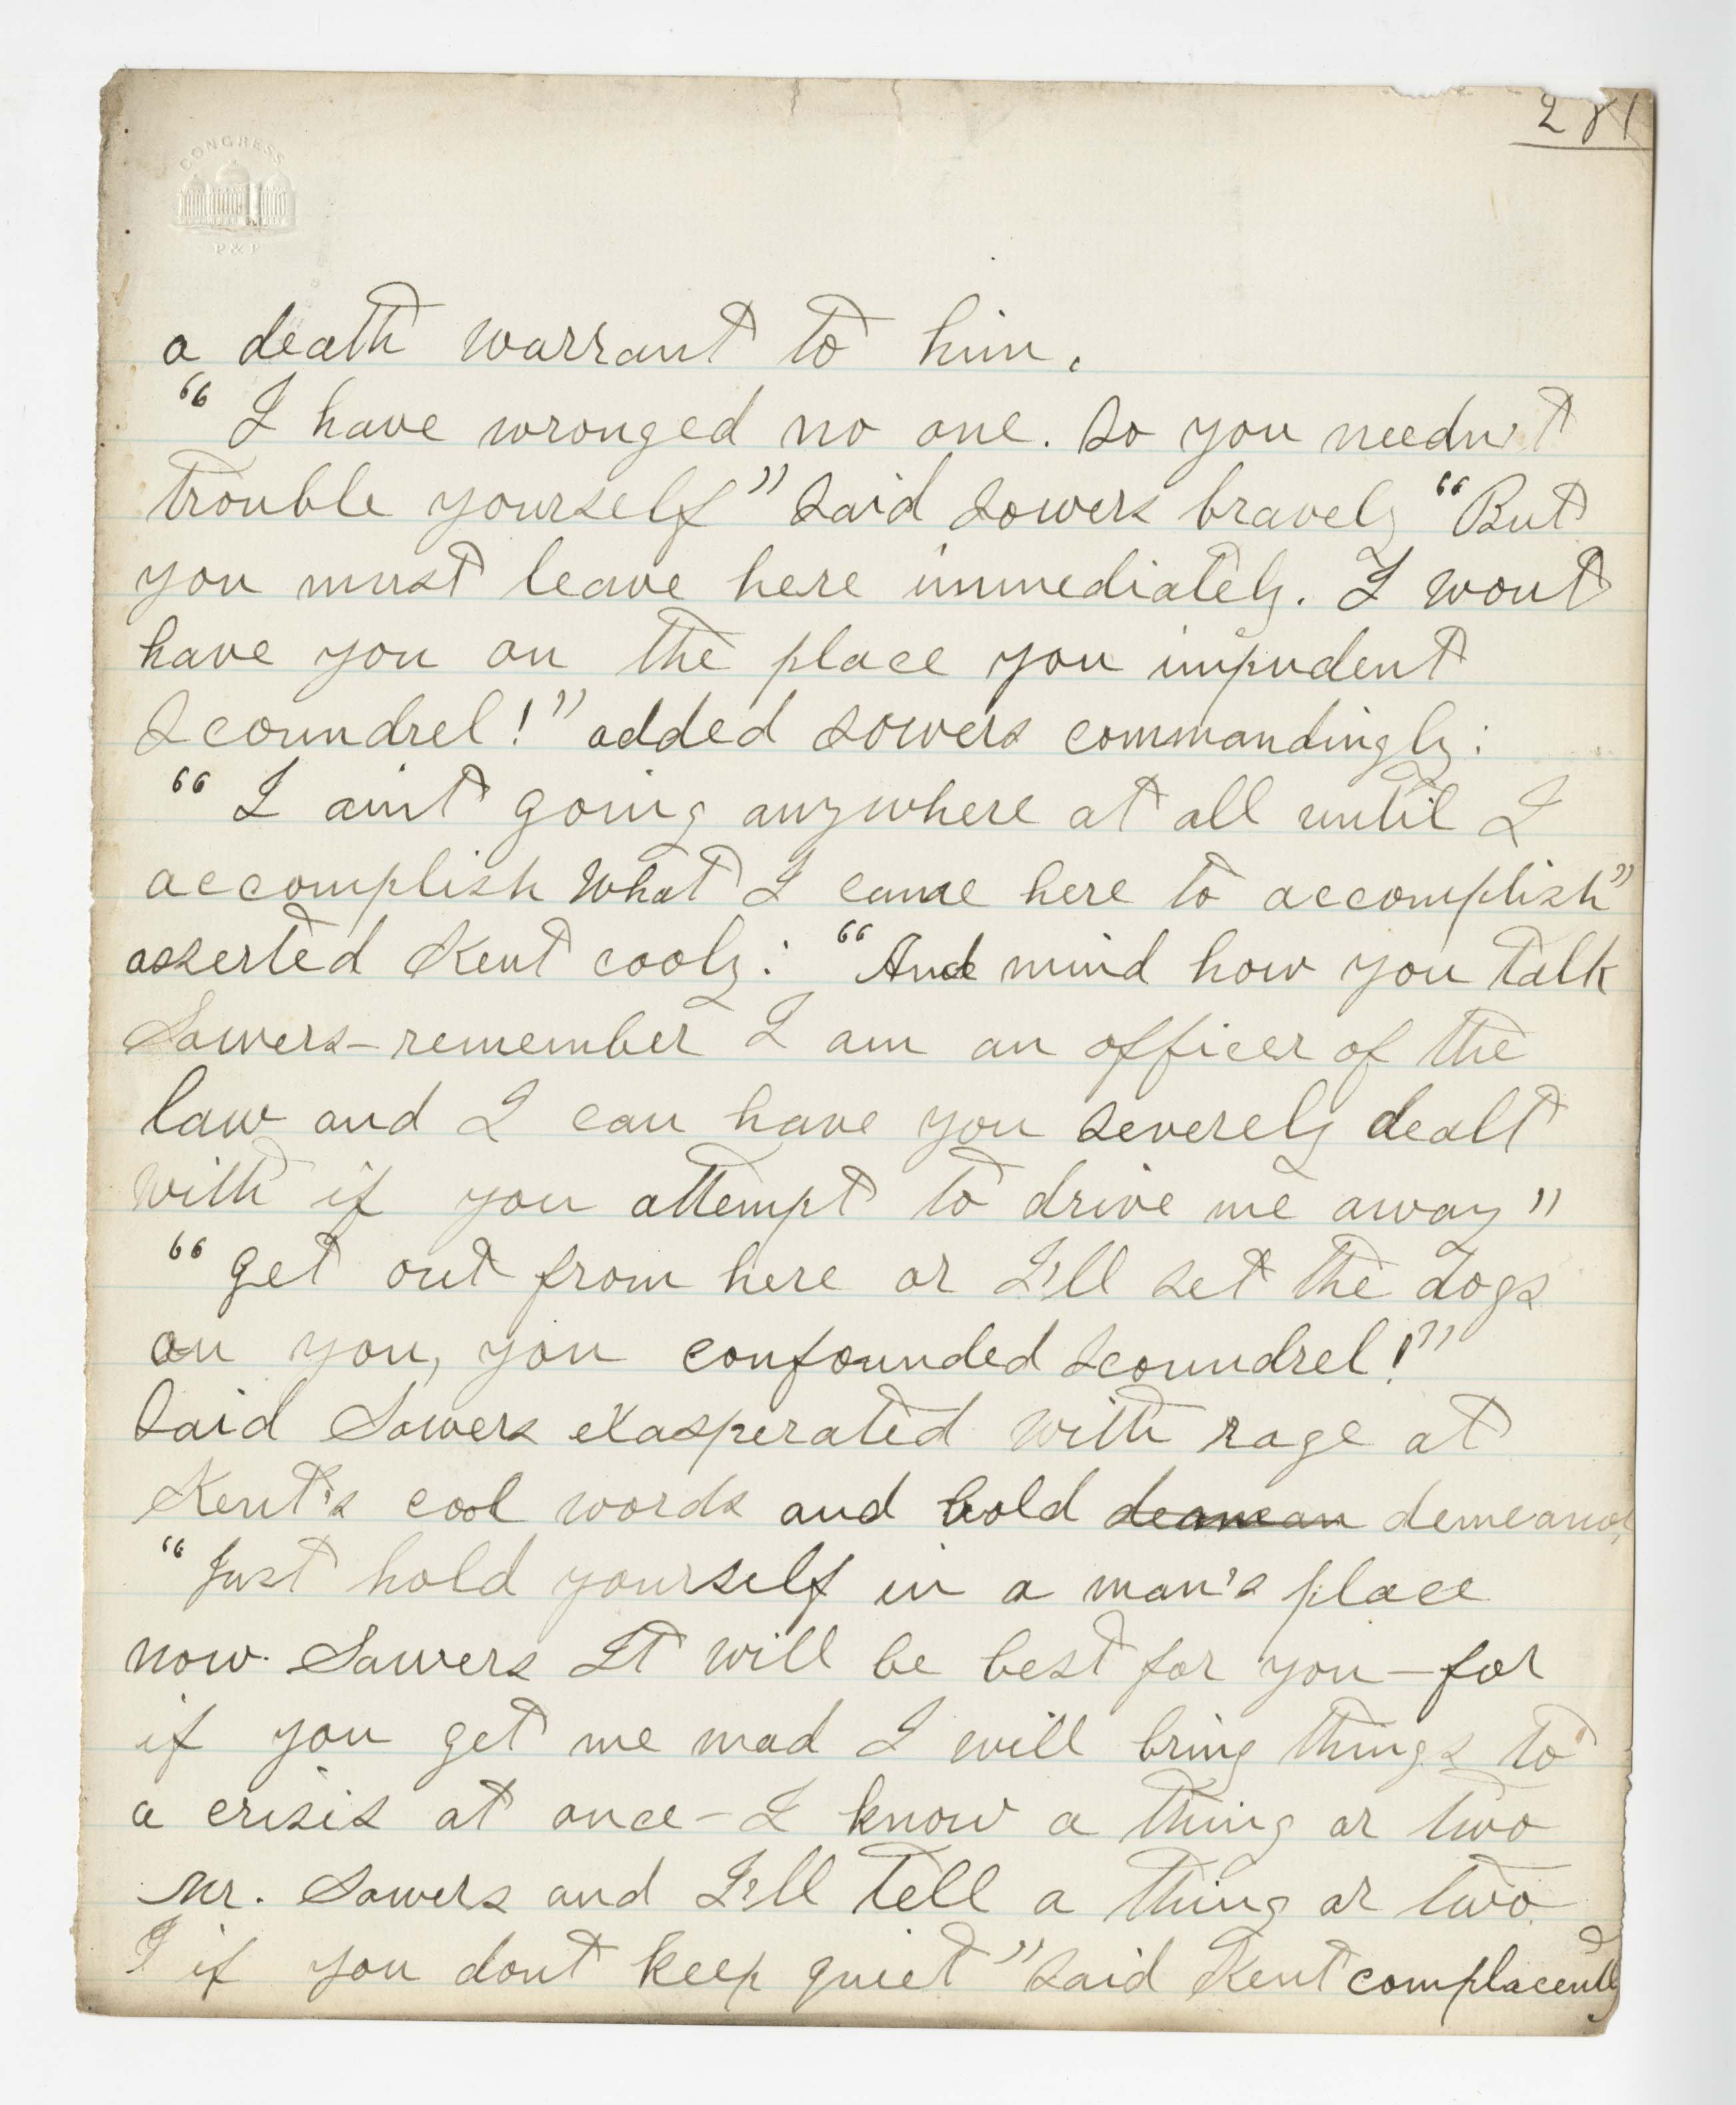 281
CONGRESS
P & P
a death warrant to him.
"I have wronged no one. So you needn't
trouble yourself" Said Sowers bravely "But
you must leave here immediately. I wont
have you on the place you impudent
Scoundrel!" added Sowers commandingly:
"I aint going anywhere at all until I
accomplish what I came here to accomplish"
asserted Kent cooly: "And mind how you talk
Sowers-remember I am an officer of the
law and I can have you severely dealt
with if you attempt to drive me away"
"Get out from here or I'll set the dogs
on you, you confounded scoundrel!"
Said Sowers exasperated with rage at
Kent's cool words and bold deamean demeanor,
"Just hold yourself in a man's place
now Sowers It will be best for you-for
if you get me mad I will bring things to
a crisis at once-I know a thing or two
Mr. Sowers and I'll tell a thing or two
if you dont keep quiet" Said Kent complacently